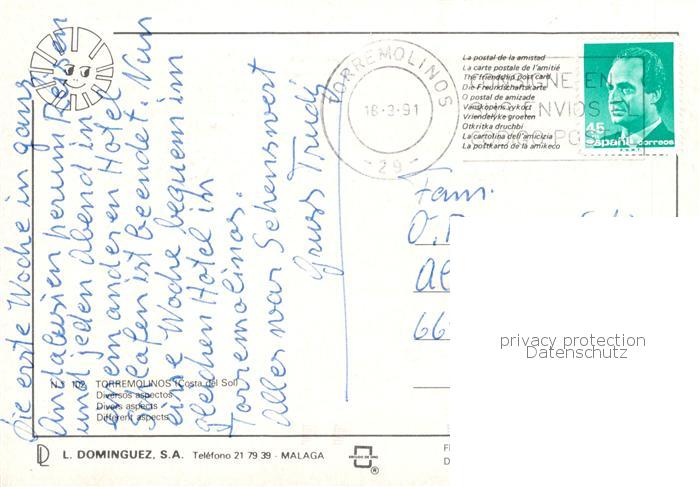 Die erste Woche in ganz
Andalusien herum Reisen
und jeden Abend in
einem anderen Hotel
Schlafen ist beendet. Nun
eine Woche bequem im
gleichen Hotel in
Torremolinos.
Alles war Sehenswert
Gruss Trudi
TORREMOLINOS
18-3-91
-29-
La postal de la amistad
La carte postale de l'amitié
The friendship post card
Die Freundschaftskarte
O postal de amizade
Vänskapens vykort
Vriendelyke groeten
Otkritka druchbi
La cartolina dell'amicizia
La postkarto de la amikeco
CONSIGNE EN
ENVIOS EL
POST
45
españa correos
Fam.
O.
66
privacy protection
Datenschutz
N.º 102 TORREMOLINOS (Costa del Sol)
Diversos aspectos
Divers aspects
Different aspects
L. DOMINGUEZ, S.A. Teléfono 21 79 39 - MALAGA
ESCUDO DE ORO
®